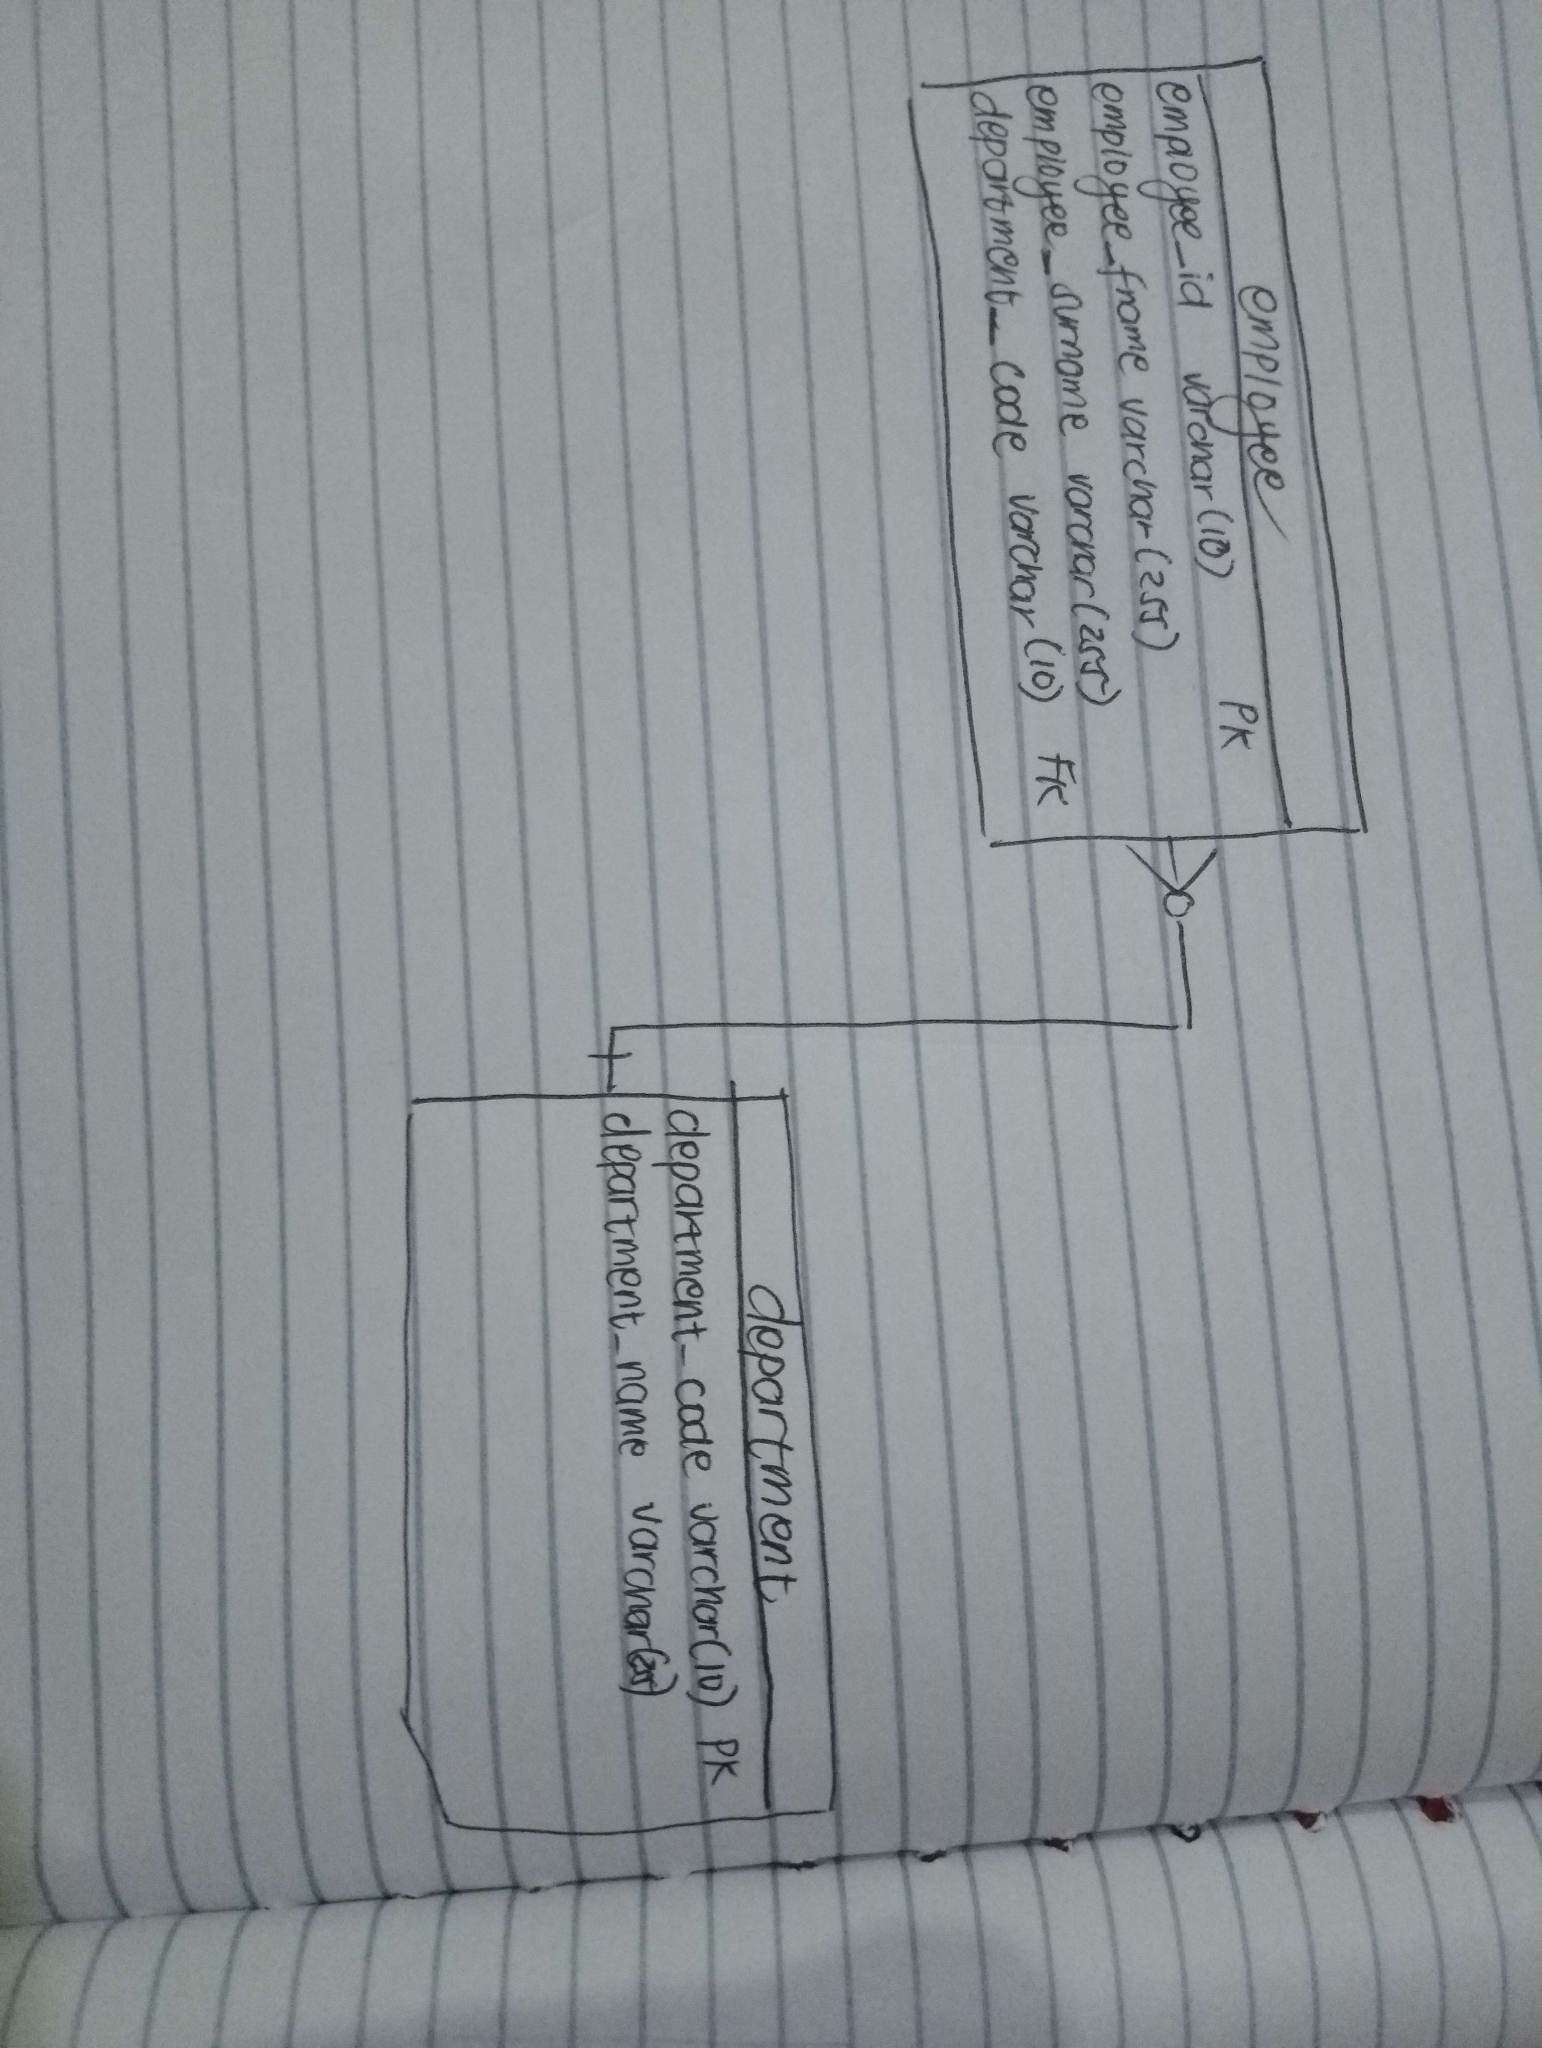 employee
employee_id varchar(10) PK
employee_fname varchar(255)
employee_surname varchar(255)
department_code varchar(10) FK
department
department_code varchar(10) PK
department_name varchar(255)